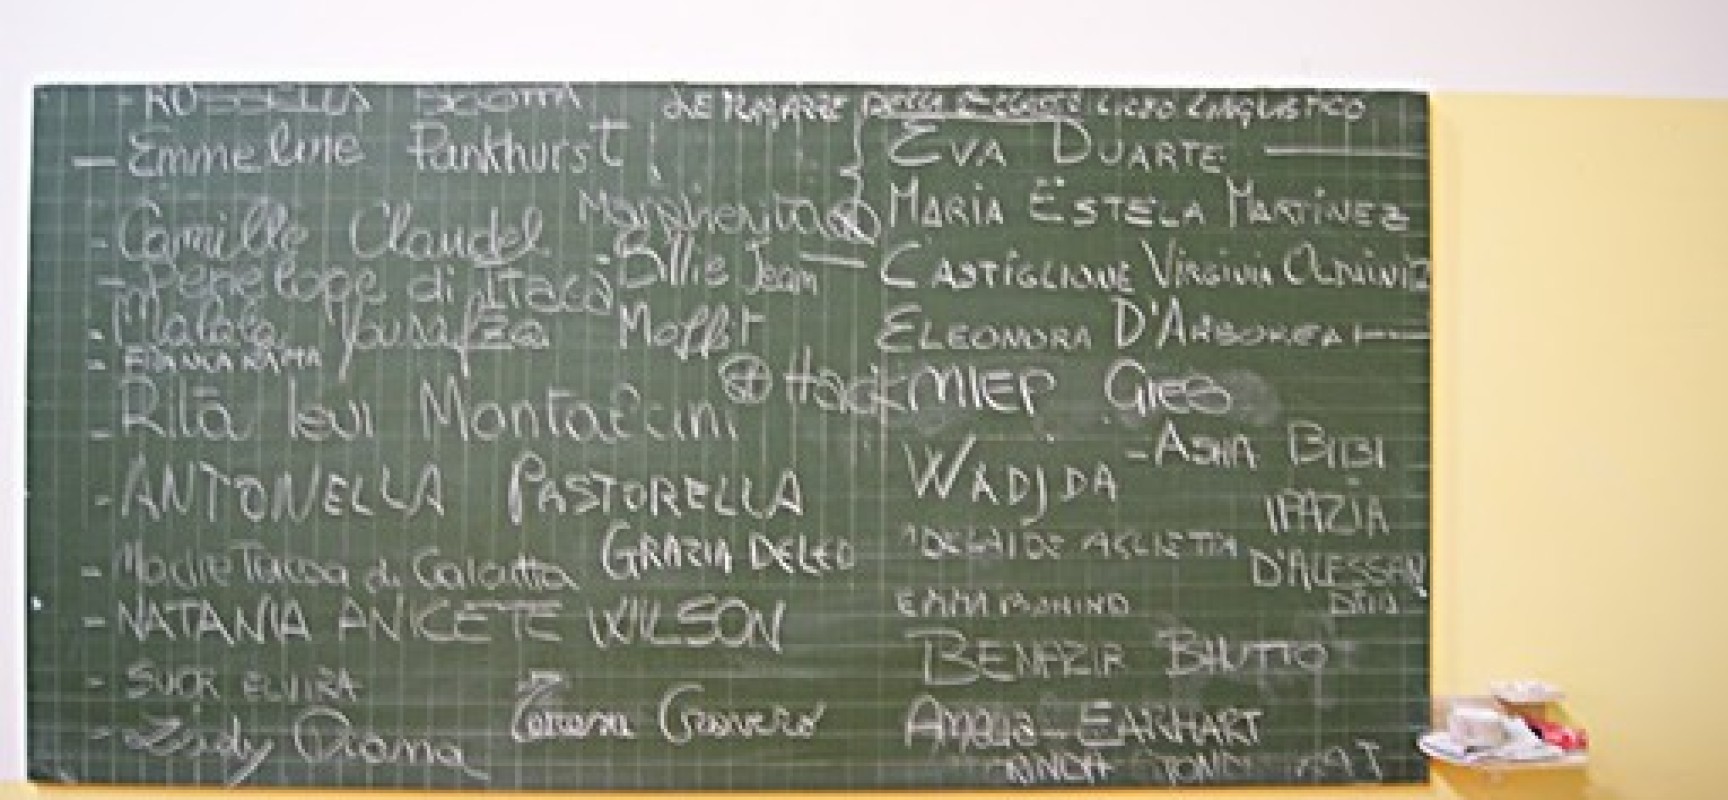 - ROSSELLA
LE RAGAZZE DELLA CLASSE LICEO LINGUISTICO
- Emmeline Pankhurst
- Camille Claudel
- Penelope di Itaca
- Malala Yousafza
- FRANCA RAMA
- Rita levi Montalcini
- ANTONELLA PASTORELLA
- Madre Teresa di Calcutta
- NATANIA ANICETE WILSON
- SUOR ELVIRA
- Lady Diana
Margherita
Hack
Billie Jean
Moffit
GRAZIA DELED
Teresa Gravero
EVA DUARTE
MARIA ESTELA MARTINEZ
CASTIGLIONE VIRGINIA
ELEONORA D'ARBOREA
MIEP GIES
WADJDA
- ASIA BIBI
IPAZIA
D'ALESSAN
DRIA
ADELAIDE AGLIETTA
EMMA BONINO
BENAZIR BHUTTO
AMELIA EARHART